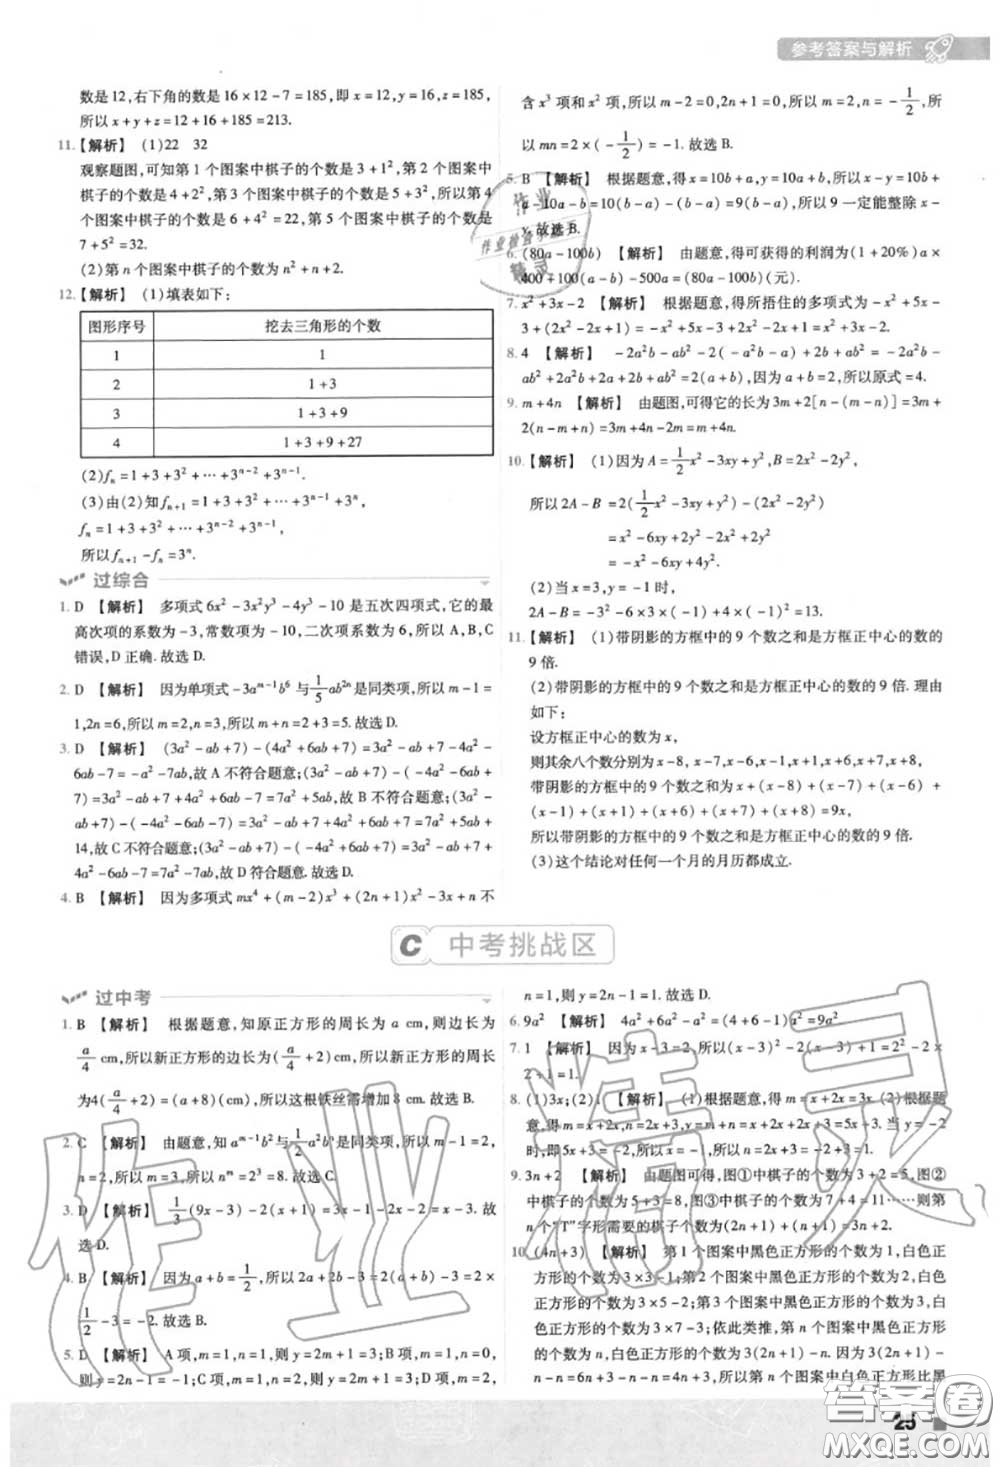 参考答案与解析
数是12,右下角的数是16×12-7=185,即x=12,y=16,z=185,
所以x+y+z=12+16+185=213.
11.【解析】 (1)22 32
观察题图,可知第1个图案中棋子的个数是3+1²,第2个图案
中棋子的个数是4+2²,第3个图案中棋子的个数是5+3²,所以第4
个图案中棋子的个数是6+4²=22,第5个图案中棋子的个数是
7+5²=32.
(2)第n个图案中棋子的个数为n²+n+2.
12.【解析】 (1)填表如下:
图形序号 挖去三角形的个数
1 1
2 1+3
3 1+3+9
4 1+3+9+27
(2)fₙ=1+3+3²+…+3ⁿ⁻²+3ⁿ⁻¹.
(3)由(2)知fₙ₊₁=1+3+3²+…+3ⁿ⁻¹+3ⁿ,
fₙ=1+3+3²+…+3ⁿ⁻²+3ⁿ⁻¹,
所以fₙ₊₁-fₙ=3ⁿ.
过综合
1. D 【解析】 多项式6x²-3x²y³-4y³-10是五次四项式,它的最
高次项的系数为-3,常数项为-10,二次项系数为6,所以A,B,C
错误,D正确.故选D.
2. D 【解析】 因为单项式-3aᵐ⁻¹b⁶与1/5ab²ⁿ是同类项,所以m-1=
1,2n=6,所以m=2,n=3,所以m+n=2+3=5.故选D.
3. D 【解析】 (3a²-ab+7)-(4a²+6ab+7)=3a²-ab+7-4a²-
6ab-7=-a²-7ab,故A不符合题意;(3a²-ab+7)-(-4a²-6ab-7)=
3a²-ab+7+4a²+6ab+7=7a²+5ab+14,故B不符合题意;(3a²-
ab+7)-(-4a²-6ab-7)=3a²-ab+7+4a²+6ab+7=7a²+5ab+
14,故C不符合题意;(3a²-ab+7)-(-4a²+6ab+7)=3a²-ab+
7+4a²-6ab-7=7a²-7ab,故D符合题意.故选D.
4. B 【解析】 因为多项式mx⁴+(m-2)x³+(2n+1)x²-3x+n不
含x³项和x²项,所以m-2=0,2n+1=0,所以m=2,n=-1/2,所
以mn=2×(-1/2)=-1.故选B.
5. B 【解析】 根据题意,得x=10b+a,y=10a+b,所以x-y=10b
+a-10a-b=10(b-a)-(b-a)=9(b-a),所以9一定能整除x-
y.故选B.
6. (80a-100b) 【解析】 由题意,得可获得的利润为(1+20%)a×
400+100(a-b)-500a=(80a-100b)(元).
7. x²+3x-2 【解析】 根据题意,得所捂住的多项式为-x²+5x-
3+(2x²-2x+1)=-x²+5x-3+2x²-2x+1=x²+3x-2.
8. 4 【解析】 -2a²b-ab²-2(-a²b-ab²-a)+2b+ab²=-2a²b-
ab²+2a²b+2a+2b+ab²=2(a+b),因为a+b=2,所以原式=4.
9. m+4n 【解析】 由题图,可得它的长为3m+2[n-(m-n)]=3m+
2(n-m+n)=3m+4n-2m=m+4n.
10.【解析】 (1)因为A=1/2x²-3xy+y²,B=2x²-2y²,
所以2A-B=2(1/2x²-3xy+y²)-(2x²-2y²)
=x²-6xy+2y²-2x²+2y²
=-x²-6xy+4y².
(2)当x=3,y=-1时,
2A-B=-3²-6×3×(-1)+4×(-1)²=13.
11.【解析】 (1)带阴影的方框中的9个数之和是方框正中心的数的
9倍.
(2)带阴影的方框中的9个数之和是方框正中心的数的9倍.理由
如下:
设方框正中心的数为x,
则其余八个数分别为x-8,x-7,x-6,x-1,x+1,x+6,x+7,x+8,
带阴影的方框中的9个数之和为x+(x-8)+(x-7)+(x-6)+
(x-1)+(x+1)+(x+6)+(x+7)+(x+8)=9x,
所以带阴影的方框中的9个数之和是方框正中心的数的9倍.
(3)这个结论对任何一个月的月历都成立.
C 中考挑战区
过中考
1. B 【解析】 根据题意,知原正方形的周长为a cm,则边长为
a/4 cm,所以新正方形的边长为(a/4+2)cm,所以新正方形的周长
为4(a/4+2)=(a+8)(cm),所以这根铁丝需增加8 cm.故选B.
2. C 【解析】 由题意,知aᵐ⁻¹b²与1/2a²bⁿ是同类项,所以m-1=2,
n=2,所以m=3,所以nᵐ=2³=8.故选C.
3. D 【解析】 1/3(9x-3)-2(x+1)=3x-1-2x-2=x-3.故
选D.
4. B 【解析】 因为a+b=1/2,所以2a+2b-3=2(a+b)-3=2×
1/2-3=-2.故选B.
5. D 【解析】 A项,m=1,n=1,则y=2m+1=3;B项,m=1,n=0,
则y=2n-1=-1;C项,m=1,n=2,则y=2m+1=3;D项,m=2,
n=1,则y=2n-1=1.故选D.
6. 9a² 【解析】 4a²+6a²-a²=(4+6-1)a²=9a²
7. 1 【解析】 因为x-3=2,所以(x-3)²-2(x-3)+1=2²-2×
2+1=1.
8. (1)3x;(2)1 【解析】 (1)根据题意,得m=x+2x=3x.(2)根据题
意,得m=x+2x=3x,n=2x+3,y=m+n=3x+2x+3=5x+3,当y=
-2时,即5x+3=-2,所以x=-1,所以n=2x+3=-2+3=1.
9. 3n+2 【解析】 由题图可得,图①中棋子的个数为3+2=5,图②
中棋子的个数为5+3=8,图③中棋子的个数为7+4=11……则第
n个“T”字形需要的棋子个数为(2n+1)+(n+1)=3n+2.
10. (4n+3) 【解析】 第1个图案中黑色正方形的个数为1,白色正
方形的个数为3×3-1;第2个图案中黑色正方形的个数为2,白色
正方形的个数为3×5-2;第3个图案中黑色正方形的个数为3,白
色正方形的个数为3×7-3;依此类推,第n个图案中黑色正方形的
个数为n,白色正方形的个数为3(2n+1)-n,所以白色正方形比黑
25
作业
作业检查小助手
精灵
作业精灵
答案圈
MXQE.COM